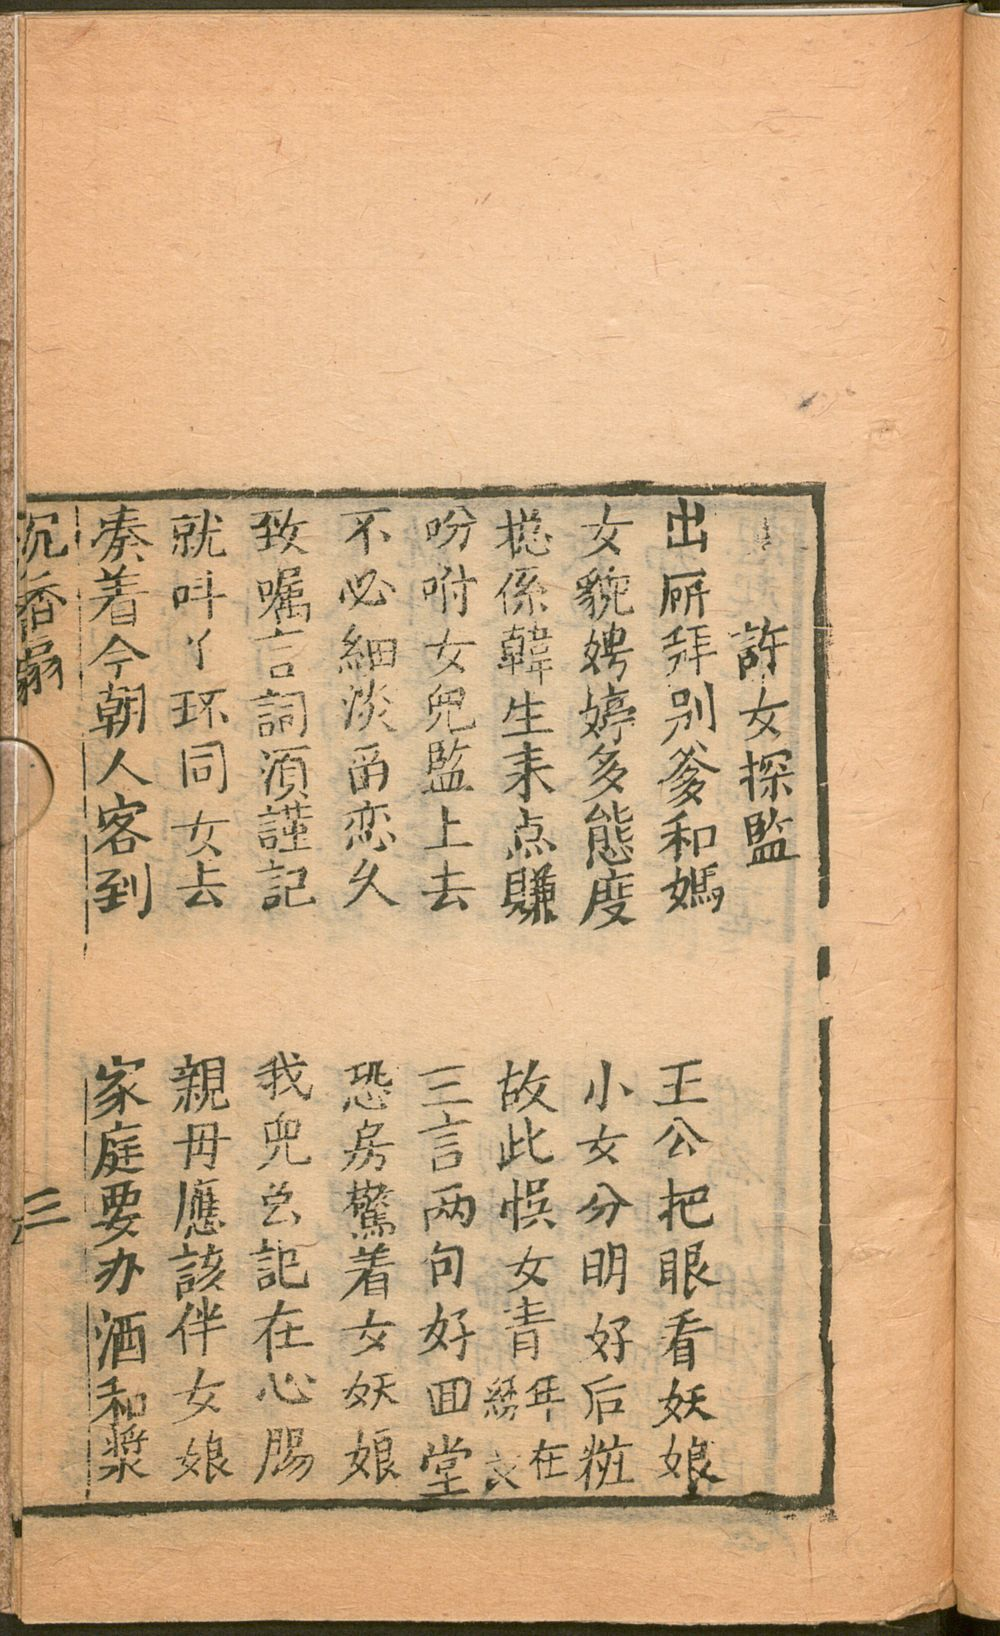 許女探監
出厛拜别爹和媽　王公把眼看妖娘
女貌娉婷多態度　小女分明好后粧
搃係韓生来点賺　故此悮女青年在綉衣
吩咐女兒監上去　三言两句好回堂
不必細淡畄恋久　恐房驚着女妖娘
致嘱言詞須謹記　我兒公記在心腸
就呌丫环同女去　親毋應該伴女娘
奏着今朝人客到　家庭要办酒和漿
沉香扇　三